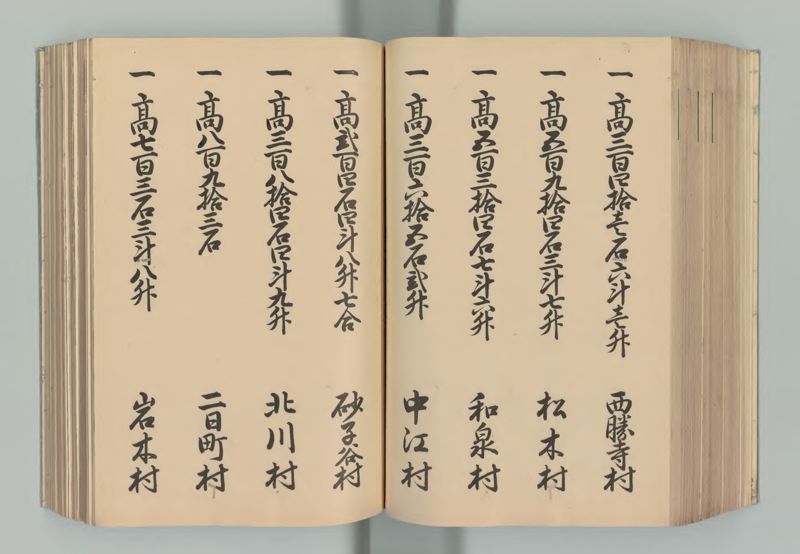 一 高三百四拾壱石六斗壱升 西勝寺村
一 高五百九拾四石三斗七升 松木村
一 高五百三拾四石七斗六升 和泉村
一 高三百六拾五石弐升 中江村
一 高弐百四石四斗八升七合 砂子谷村
一 高三百八拾四石四斗九升 北川村
一 高八百九拾三石 二日町村
一 高七百三石三斗八升 岩木村